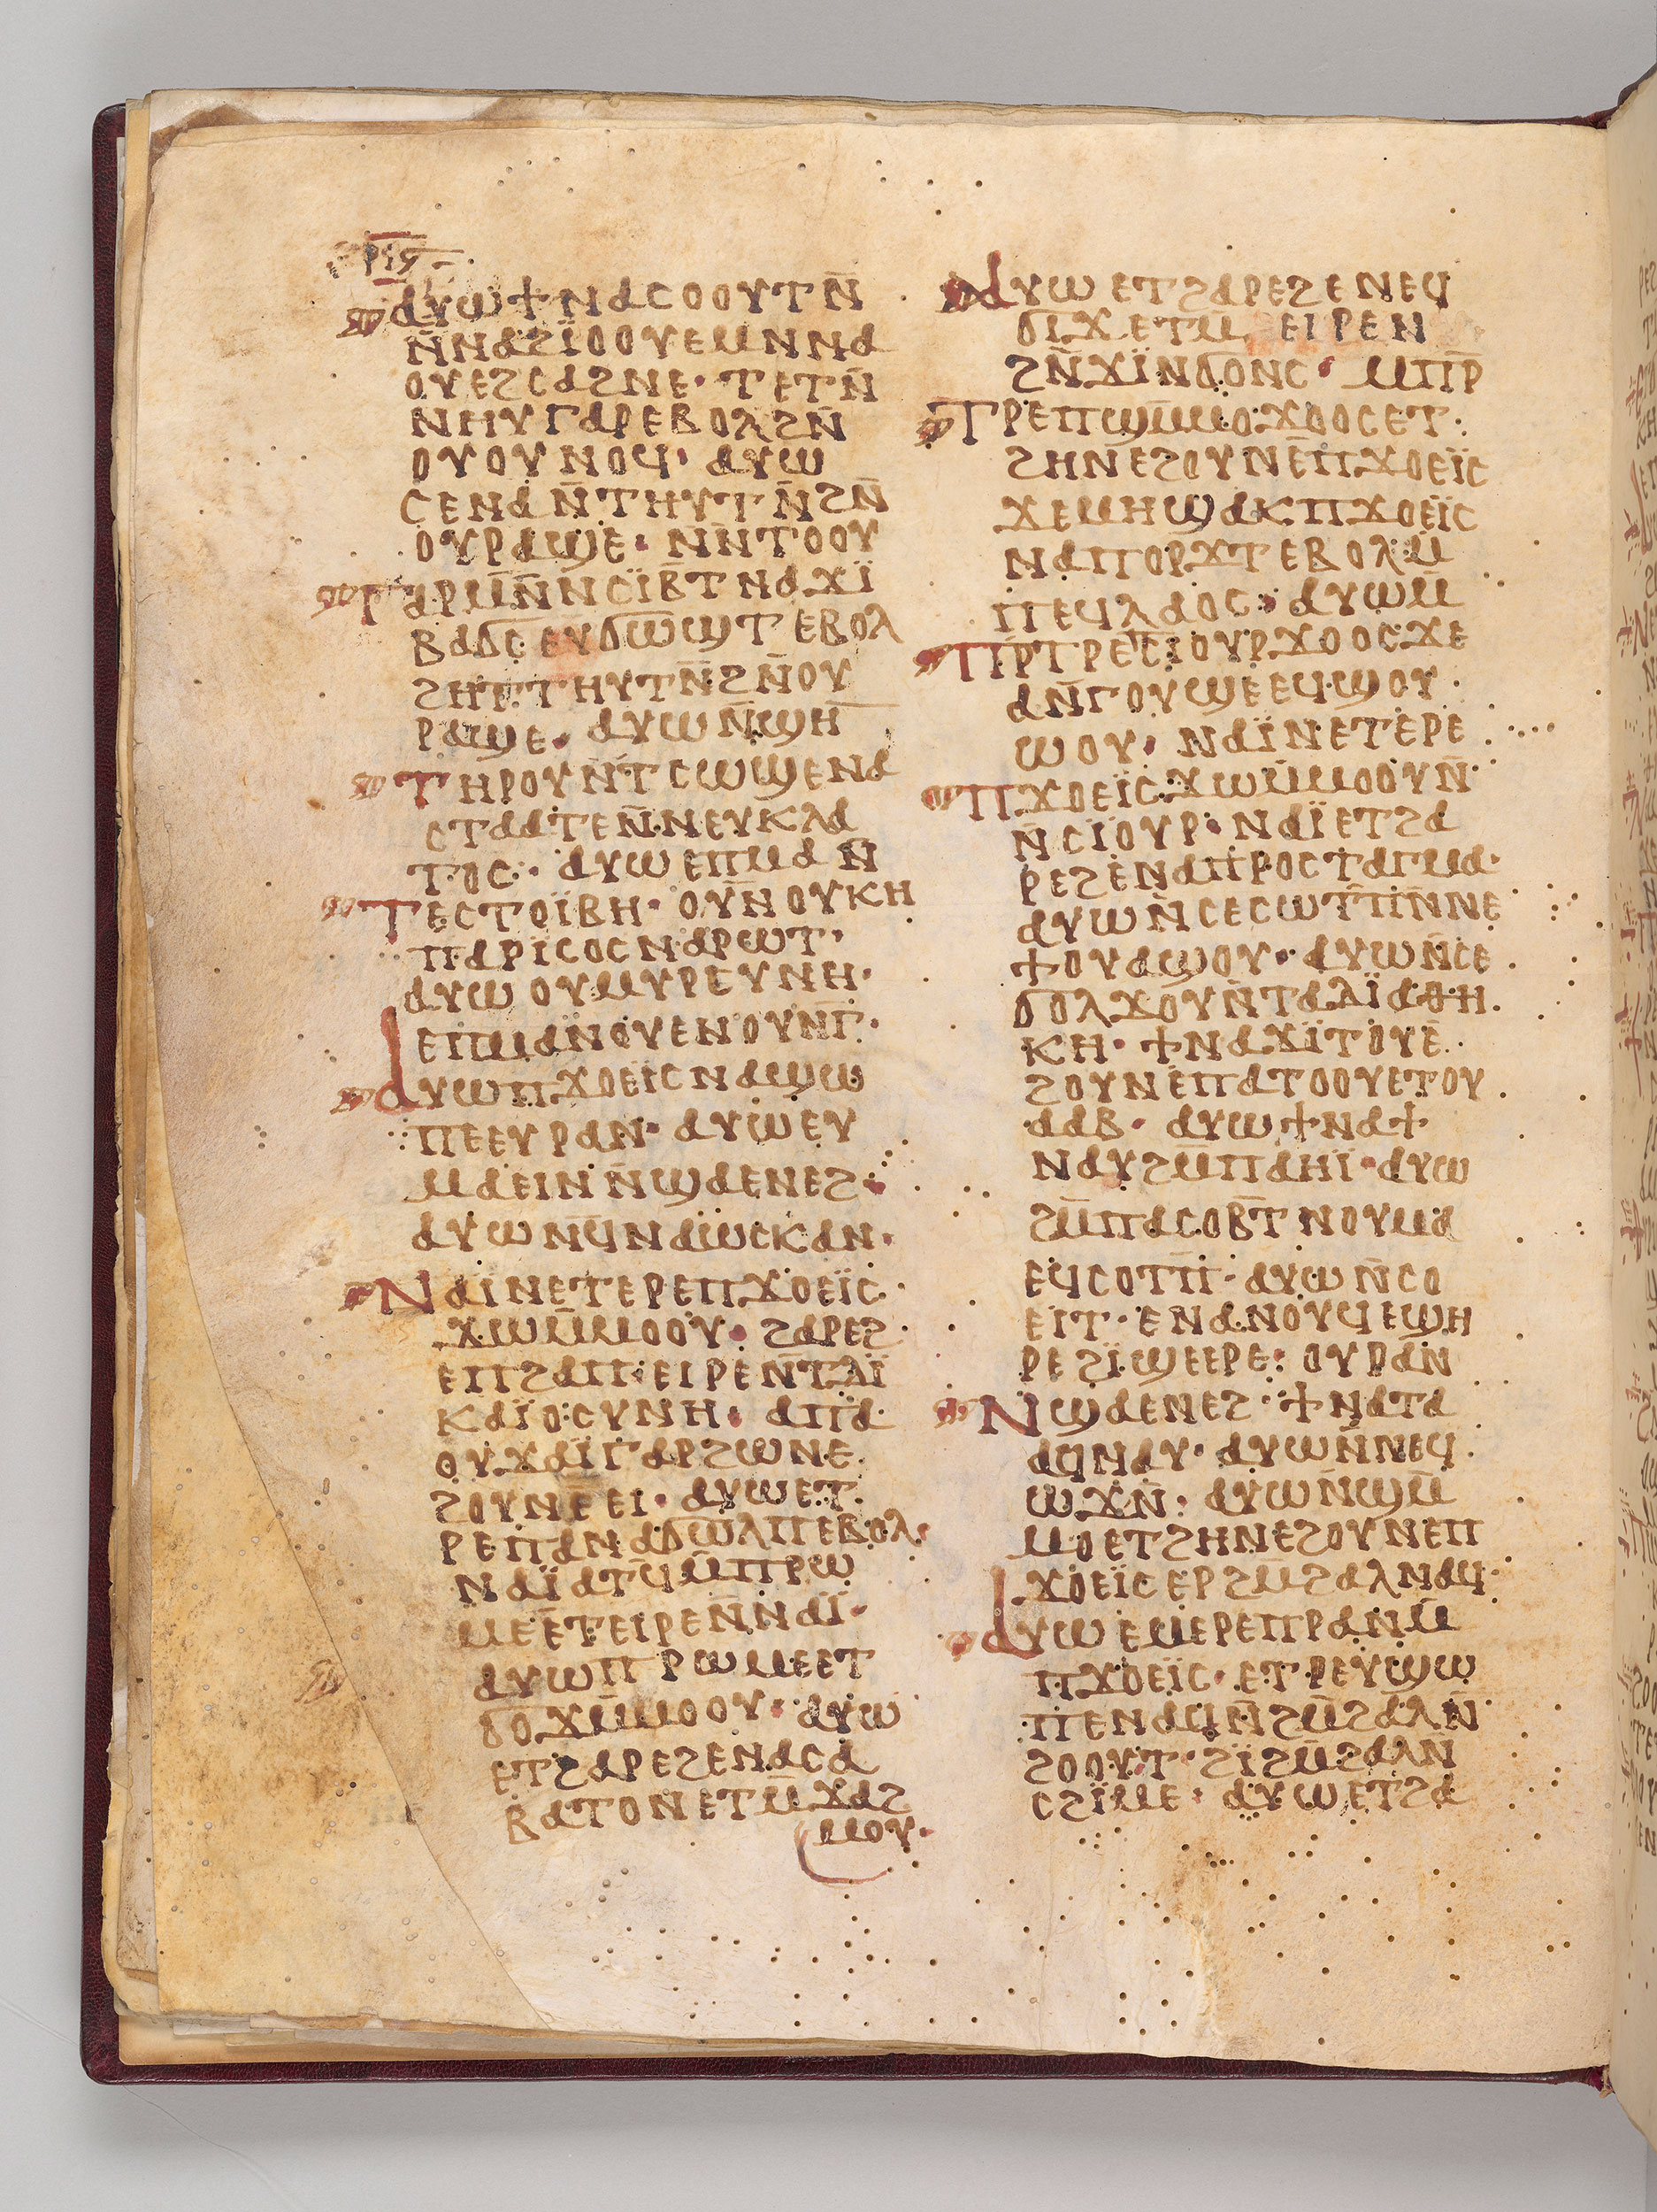 ⲣⲓⲋ
ⲁⲩⲱϯⲛⲁⲥⲟⲟⲩⲧⲛ̄
ⲛ̄ⲛⲁϩⲓ̈ⲟⲟⲩⲉⲙⲛⲛⲁ
ⲟⲩⲉϩⲥⲁϩⲛⲉ· ⲧⲉⲧⲛ̄
ⲛⲏⲩⲅⲁⲣⲉⲃⲟⲗϩⲛ̄
ⲟⲩⲟⲩⲛⲟϥ· ⲁⲩⲱ
ⲥⲉⲛⲁⲛ̄ⲧⲏⲩⲧⲛ̄ϩⲛ̄
ⲟⲩⲣⲁϣⲉ· ⲛ̄ⲛ̄ⲧⲟⲟⲩ
ⲅⲁⲣⲙⲛ̄ⲛ̄ⲥⲓ̈ⲃ̄ⲧⲛⲁϫⲓ̈
ⲃⲁϭⲥ̣ⲉⲩϭⲱϣⲧ ⲉⲃⲟⲗ
ϩⲏⲧⲧⲏⲩⲧⲛ̄ϩⲛ̄ⲟⲩ
ⲣⲁϣⲉ· ⲁⲩⲱⲛ̄ϣⲏ
ⲧⲏⲣⲟⲩⲛ̄ⲧⲥⲱϣⲉⲛⲁ
ⲥⲧⲁⲁⲧⲉⲛ̄ⲛⲉⲩⲕⲗⲁ
ⲧⲟⲥ· ⲁⲩⲱⲉⲡⲙⲁⲛ̄
ⲧⲉⲥⲧⲟⲓ̈ⲃⲏ· ⲟⲩⲛ̄ⲟⲩⲕⲏ
ⲡⲁⲣⲓ̈ⲥⲟⲥⲛⲁⲣⲱⲧ·
ⲁⲩⲱⲟⲩⲙⲩⲣⲥⲩⲛⲏ·
ⲉⲡⲙⲁⲛ̈ⲟⲩⲉⲛⲟⲩⲛ̄ⲅ̄·
ⲁⲩⲱⲡϫⲟⲉⲓ̈ⲥⲛⲁϣⲱ
ⲡⲉⲉⲩⲣⲁⲛ· ⲁⲩⲱⲉⲩ
ⲙⲁⲉⲓⲛⲛ̄ϣⲁⲉⲛⲉϩ·
ⲁⲩⲱⲛϥⲛⲁⲱⲥⲕⲁⲛ·
ⲛⲁⲓ̈ⲛⲉⲧⲉⲣⲉⲡϫⲟⲉⲓ̈ⲥ
ϫⲱⲙ̄ⲙⲟⲟⲩ· ϩⲁⲣⲉϩ
ⲉⲡϩⲁⲡ·ⲉⲓⲣⲉⲛ̄ⲧⲇⲓ̈
ⲕⲁⲓ̈ⲟⲥⲩⲛⲏ· ⲁⲡⲁ
ⲟⲩϫⲁⲓ̈ⲅⲁⲣϩⲱⲛⲉ
ϩⲟⲩⲛⲉ̄ⲉⲓ· ⲁⲩⲱⲉⲧ
ⲣⲉⲡⲁⲛⲁϭⲱⲗⲡⲉⲃⲟⲗ·
ⲛⲁⲓ̈ⲁⲧϥⲙ̄ⲡⲣⲱ
ⲙⲉⲉⲧⲉⲓⲣⲉⲛ̄ⲛⲁⲓ̈·
ⲁⲩⲱⲡⲣⲱⲙⲉⲉⲧ
ϭⲟϫⲙ̄ⲙⲟⲟⲩ· ⲁⲩⲱ
ⲉⲧϩⲁⲣⲉϩⲉⲛⲁⲥⲁ
ⲃⲁⲧⲟⲛⲉⲧⲙ̄ϫⲁϩ
ⲙⲟⲩ·
ⲁⲩⲱⲉⲧϩⲁⲣⲉϩⲉⲛⲉϥ
ϭⲓϫⲉⲧⲙ̄ ⲉⲓⲣⲉⲛ
ϩⲛ̄ϫⲓ̈ⲛϭⲟⲛⲥ· ⲙⲡⲣ̄
ⲧⲣⲉⲡϣⲙ̄ⲙⲟϫⲟⲟⲥⲉⲧ
ϩⲏⲛⲉϩⲟⲩⲛⲉⲡϫⲟⲉⲓ̈ⲥ
ϫⲉⲙⲏϣⲁⲕⲡϫⲟⲉⲓ̈ⲥ
ⲛⲁⲡⲟⲣϫⲧⲉⲃⲟⲗⲙ̄
ⲡⲉϥⲗⲁⲟⲥ· ⲁⲩⲱⲙ̄
ⲡⲣ̄ⲧⲣⲉⲥⲓⲟⲩⲣϫⲟⲟⲥϫⲉ
ⲁⲛ̄ⲅⲟⲩϣⲉⲉϥϣⲟⲩ
ⲱⲟⲩ· ⲛⲁⲓ̈ⲛⲉⲧⲉⲣⲉ
ⲡϫⲟⲉⲓ̈ⲥϫⲱⲙ̄ⲙⲟⲟⲩⲛ̄
ⲛ̄ⲥⲓ̈ⲟⲩⲣ· ⲛⲁⲓ̈ⲉⲧϩⲁ
ⲣⲉϩⲉⲛⲁⲡⲣⲟⲥⲧⲁⲅⲙⲁ·
ⲁⲩⲱⲛ̄ⲥⲉⲥⲱⲧⲡ̄ⲛ̄ⲛⲉ
ϯⲟⲩⲁϣⲟⲩ· ⲁⲩⲱⲛ̄ⲥⲉ
ϭⲟⲗϫⲟⲩⲛ̄ⲧⲁⲇⲓ̈ⲁⲑⲏ
ⲕⲏ· ϯⲛⲁϫⲓ̈ⲧⲟⲩⲉ
ϩⲟⲩⲛⲉⲡⲁⲧⲟⲟⲩⲉⲧⲟⲩ
ⲁⲁⲃ· ⲁⲩⲱϯⲛⲁϯ
ⲛⲁⲩϩⲙ̄ⲡⲁⲏⲓ̈·ⲁⲩⲱ
ϩⲙ̄ⲡⲁⲥⲟⲃ̄ⲧⲛⲟⲩⲙⲁ
ⲉϥⲥⲟⲧⲡ̄· ⲁⲩⲱⲛ̄ⲥⲟ
ⲉⲓⲧ·ⲉⲛⲁⲛⲟⲩϥⲉϣⲏ
ⲣⲉϩⲓ̈ϣⲉⲉⲣⲉ· ⲟⲩⲣⲁⲛ
ⲛϣⲁⲉⲛⲉϩ·ϯⲛⲁⲧⲁ
ⲁϥⲛⲁⲩ· ⲁⲩⲱⲛ̄ⲛⲉϥ
ⲱϫⲛ̄· ⲁⲩⲱⲛ̄ϣⲙ̄
ⲙⲟⲉⲧϩⲏⲛⲉϩⲟⲩⲛⲉⲡ
ϫⲟⲉⲓ̈ⲥⲉⲣϩⲙ̄ϩⲁⲗⲛⲁϥ·
ⲁⲩⲱⲉⲙⲉⲣⲉⲡⲣⲁⲛⲙ̄
ⲡϫⲟⲉⲓ̈ⲥ· ⲉⲧⲣⲉⲩϣⲱ
ⲡⲉⲛⲁϥⲛ̄ϩⲙ̄ϩⲁⲗⲛ̄
ϩⲟⲟⲩⲧ·ϩⲓ̈ϩⲙ̄ϩⲁⲗⲛ̄
ⲥϩⲓ̈ⲙⲉ· ⲁⲩⲱⲉⲧϩⲁ